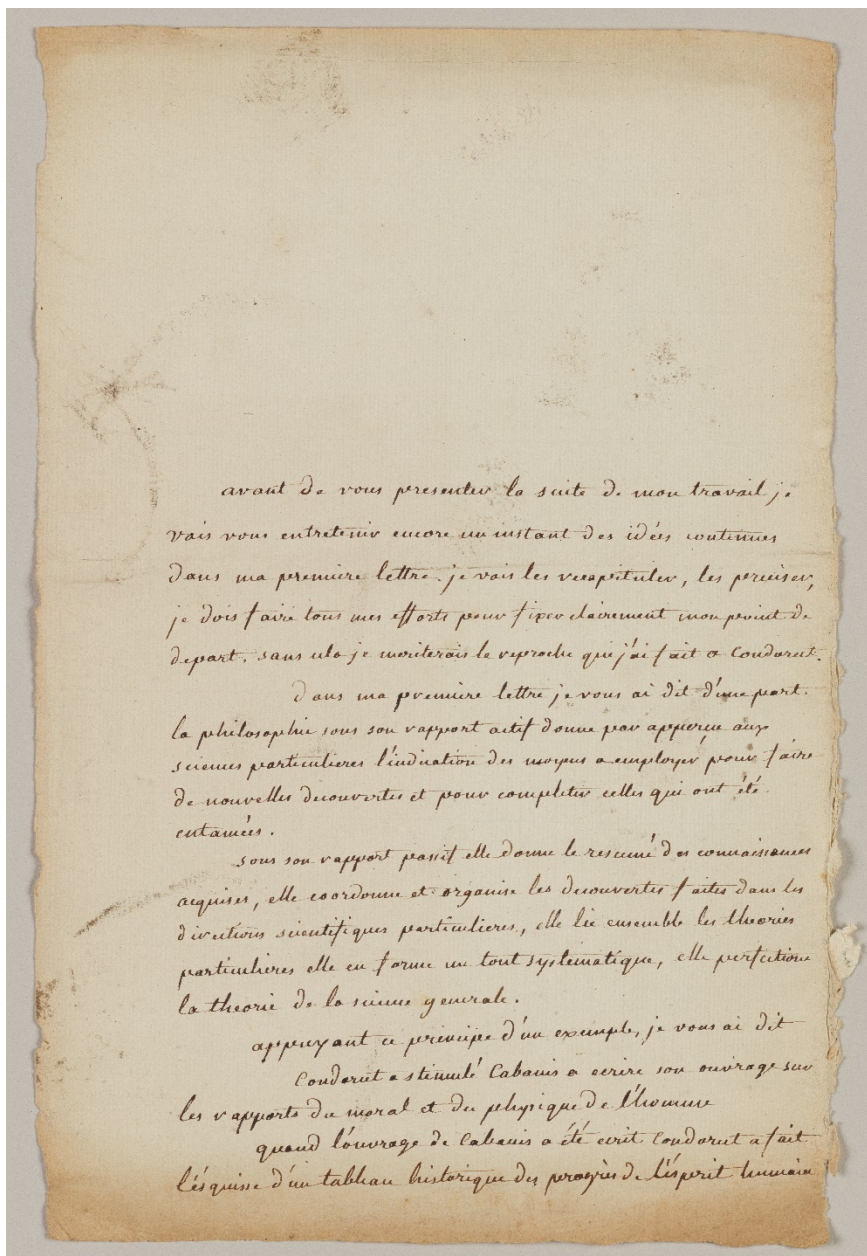 avant de vous presenter la suite de mon travail je
vais vous entretenir encore un instant des idées contenues
dans ma premiere lettre. je vais les recapituler, les preciser,
je dois faire tous mes efforts pour fixer clairement mon point de
depart. sans cela je meriterais le reproche que j'ai fait a Condorcet.
dans ma premiere lettre je vous ai dit d'une part.
la philosophie sous son rapport actif donne par apperçue aux
sciences particulieres l'indication des moyens a employer pour faire
de nouvelles decouvertes et pour completer celles qui ont été
entamées.
sous son rapport passif elle donne le resumé des connaissances
acquises, elle coordonne et organise les decouvertes faites dans les
directions scientifiques particulieres, elle lie ensemble les theories
particulieres elle en forme un tout systematique, elle perfectione
la theorie de la science generale.
appuyant ce principe d'un exemple, je vous ai dit
Condorcet a stimulé Cabanis a ecrire son ouvrage sur
les rapports du moral et du physique de l'homme
quand l'ouvrage de Cabanis a été ecrit Condorcet a fait
l'ésquisse d'un tableau historique des progrès de l'ésperit humain